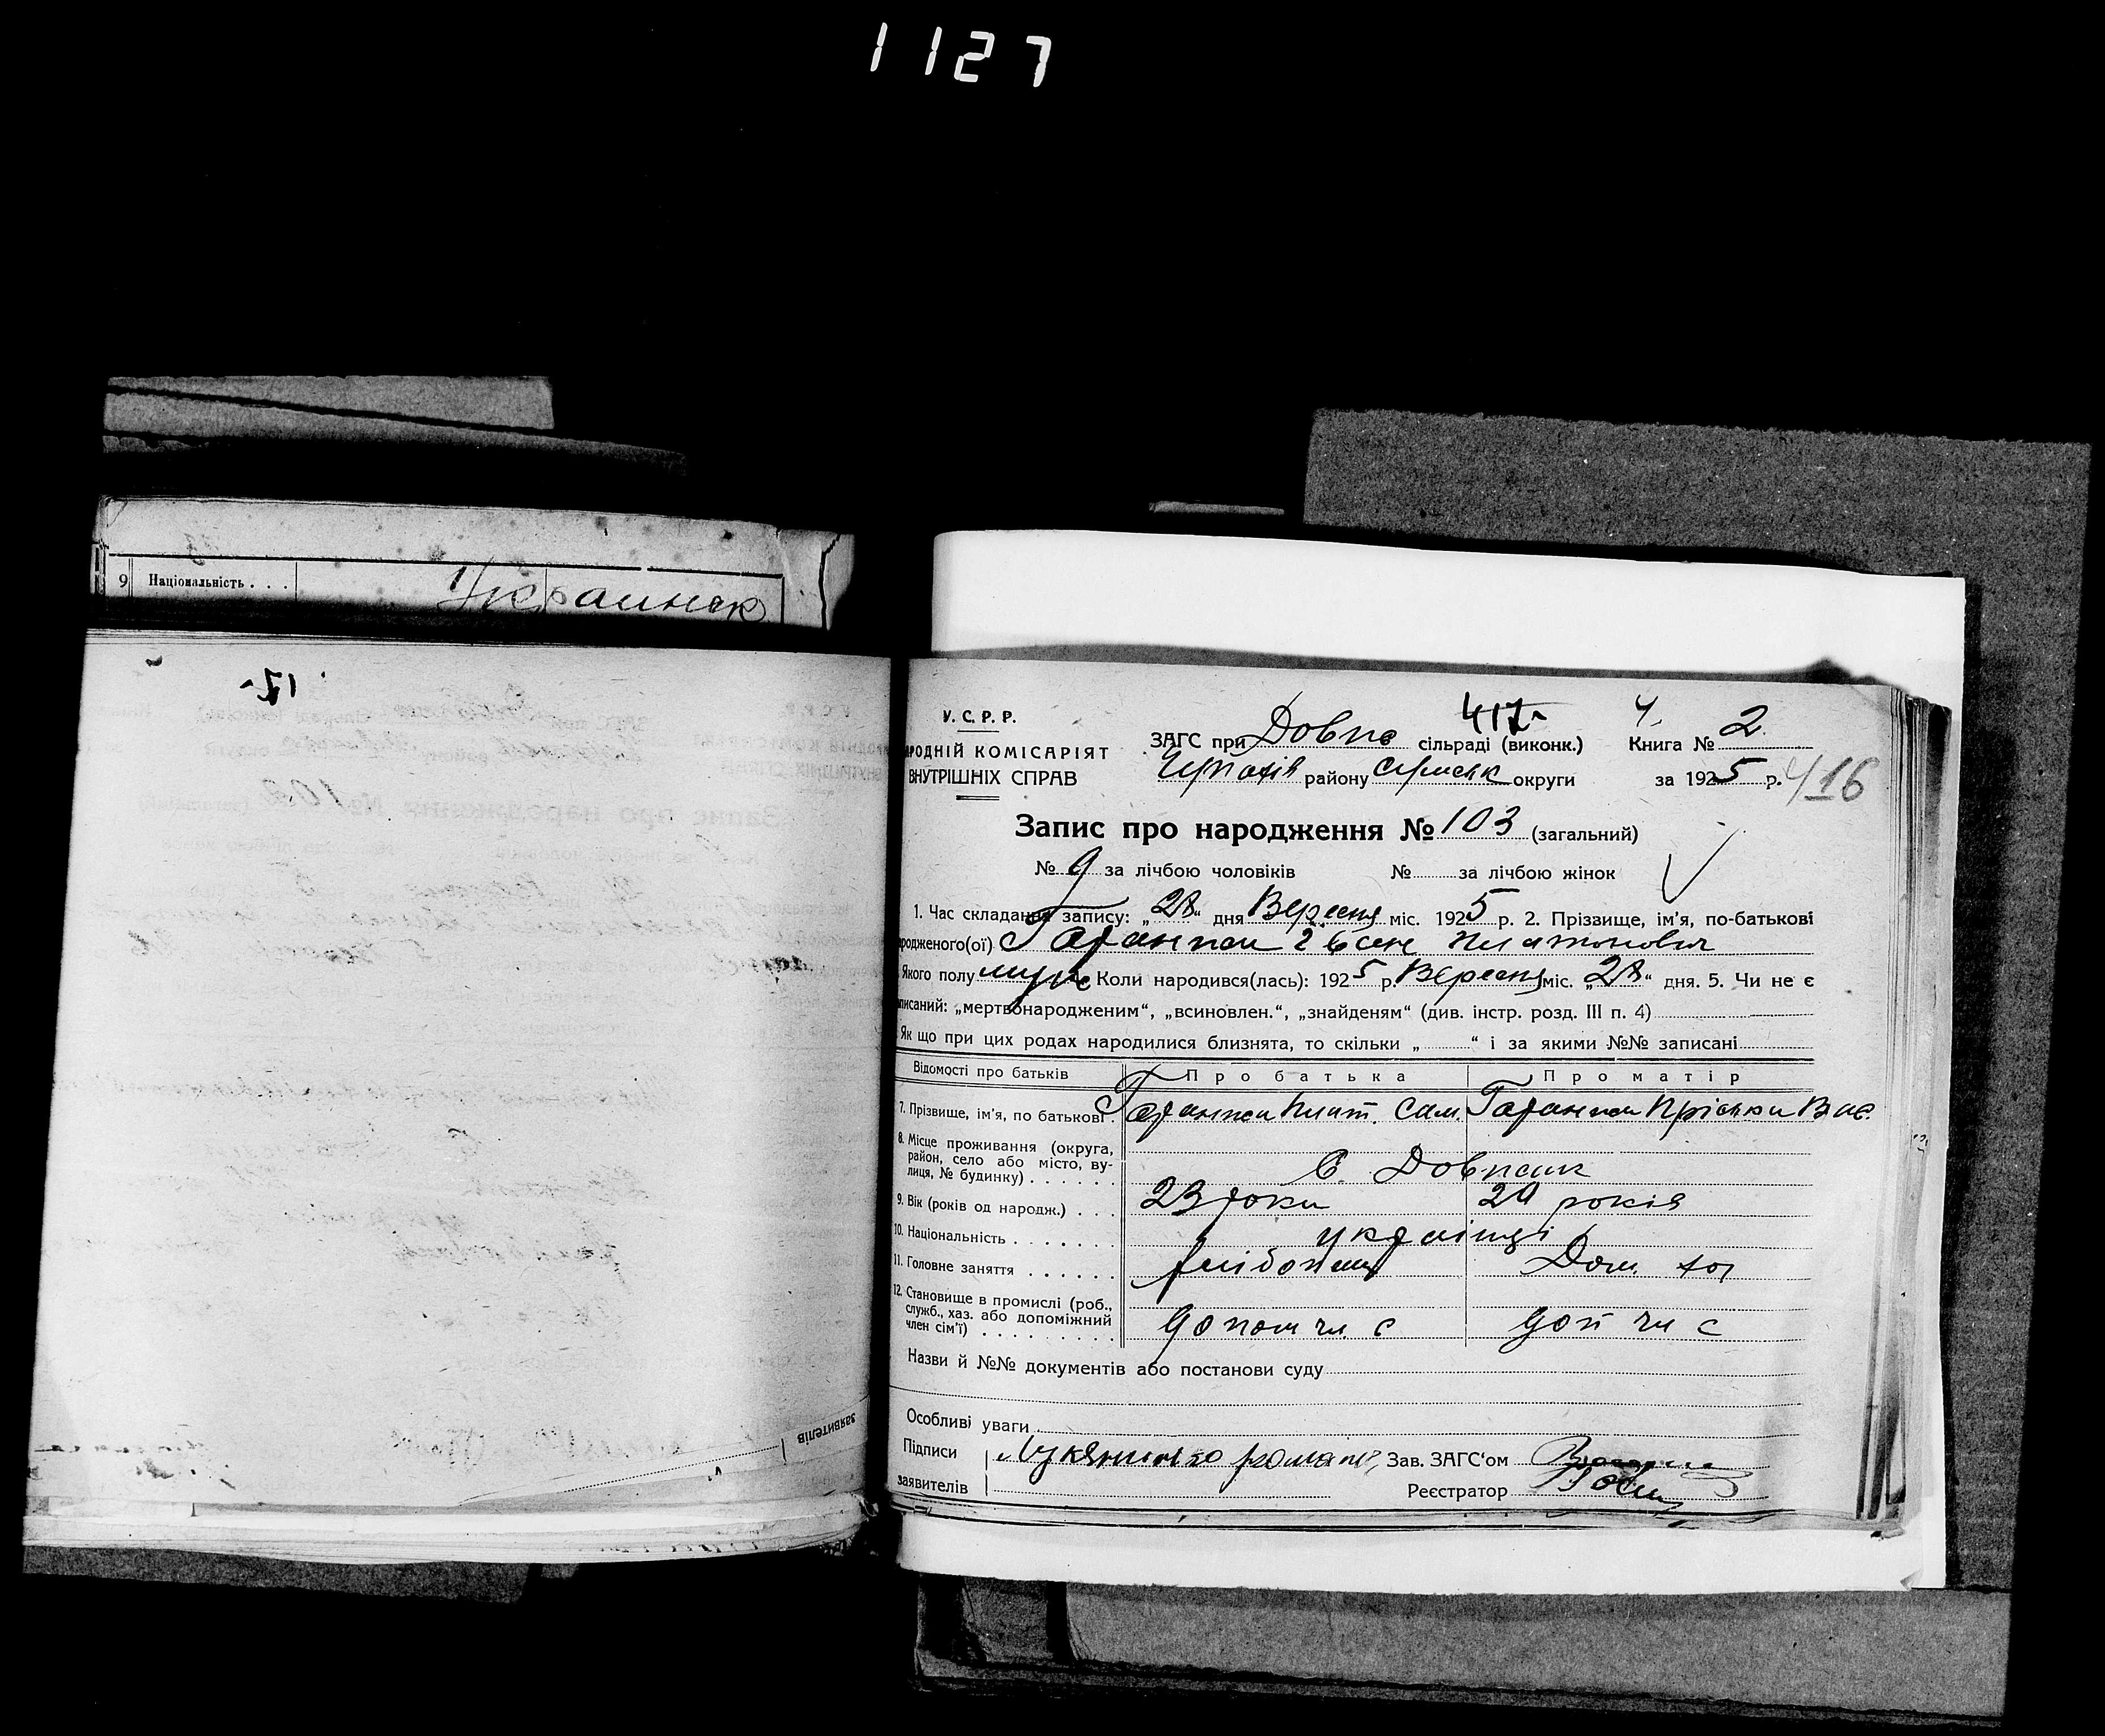 1127
9 Національність . . .
Украинск
У. С. Р. Р.
РОДНІЙ КОМІСАРІЯТ
ВНУТРІШНІХ СПРАВ
417
ЗАГС при Довпс сільраді (виконк.)
району Сумськ округи
4. Книга № 2
за 1925 р.
416
Запис про народження № 103 (загальний)
№ 9 за лічбою чоловіків № за лічбою жінок
1. Час складання запису: „28“ дня Вересня міс. 1925 р. 2. Прізвище, ім’я, по-батькові
родженого(ої) Гаранжа Платонович
Якого полу муж Коли народився(лась): 1925 р. Вересня міс. „28“ дня. 5. Чи не є
писаний: „мертвонародженим“, „всиновлен.“, „знайденям“ (див. інстр. розд. III п. 4)
Як що при цих родах народилися близнята, то скільки „ “ і за якими №№ записані
Відомості про батьків Про батька Про матір
7. Прізвище, ім’я, по батькові . Гаранжа Плат. Сам. Гаранжа Пріська Вас.
8. Місце проживання (округа,
район, село або місто, ву-
лиця, № будинку) . . . . . .
С. Довпсик
9. Вік (років од народж.) . . . 23 роки 20 років
10. Національність . . . . . . . українці
11. Головне заняття . . . . . . Дом. гос
12. Становище в промислі (роб.,
служб., хаз. або допоміжний
член сім’ї) . . . . . . . . . .
допом чл. с доп чл с
Назви й №№ документів або постанови суду
Особливі уваги
Підписи Зав. ЗАГС’ом
заявителів Реєстратор
заявителів